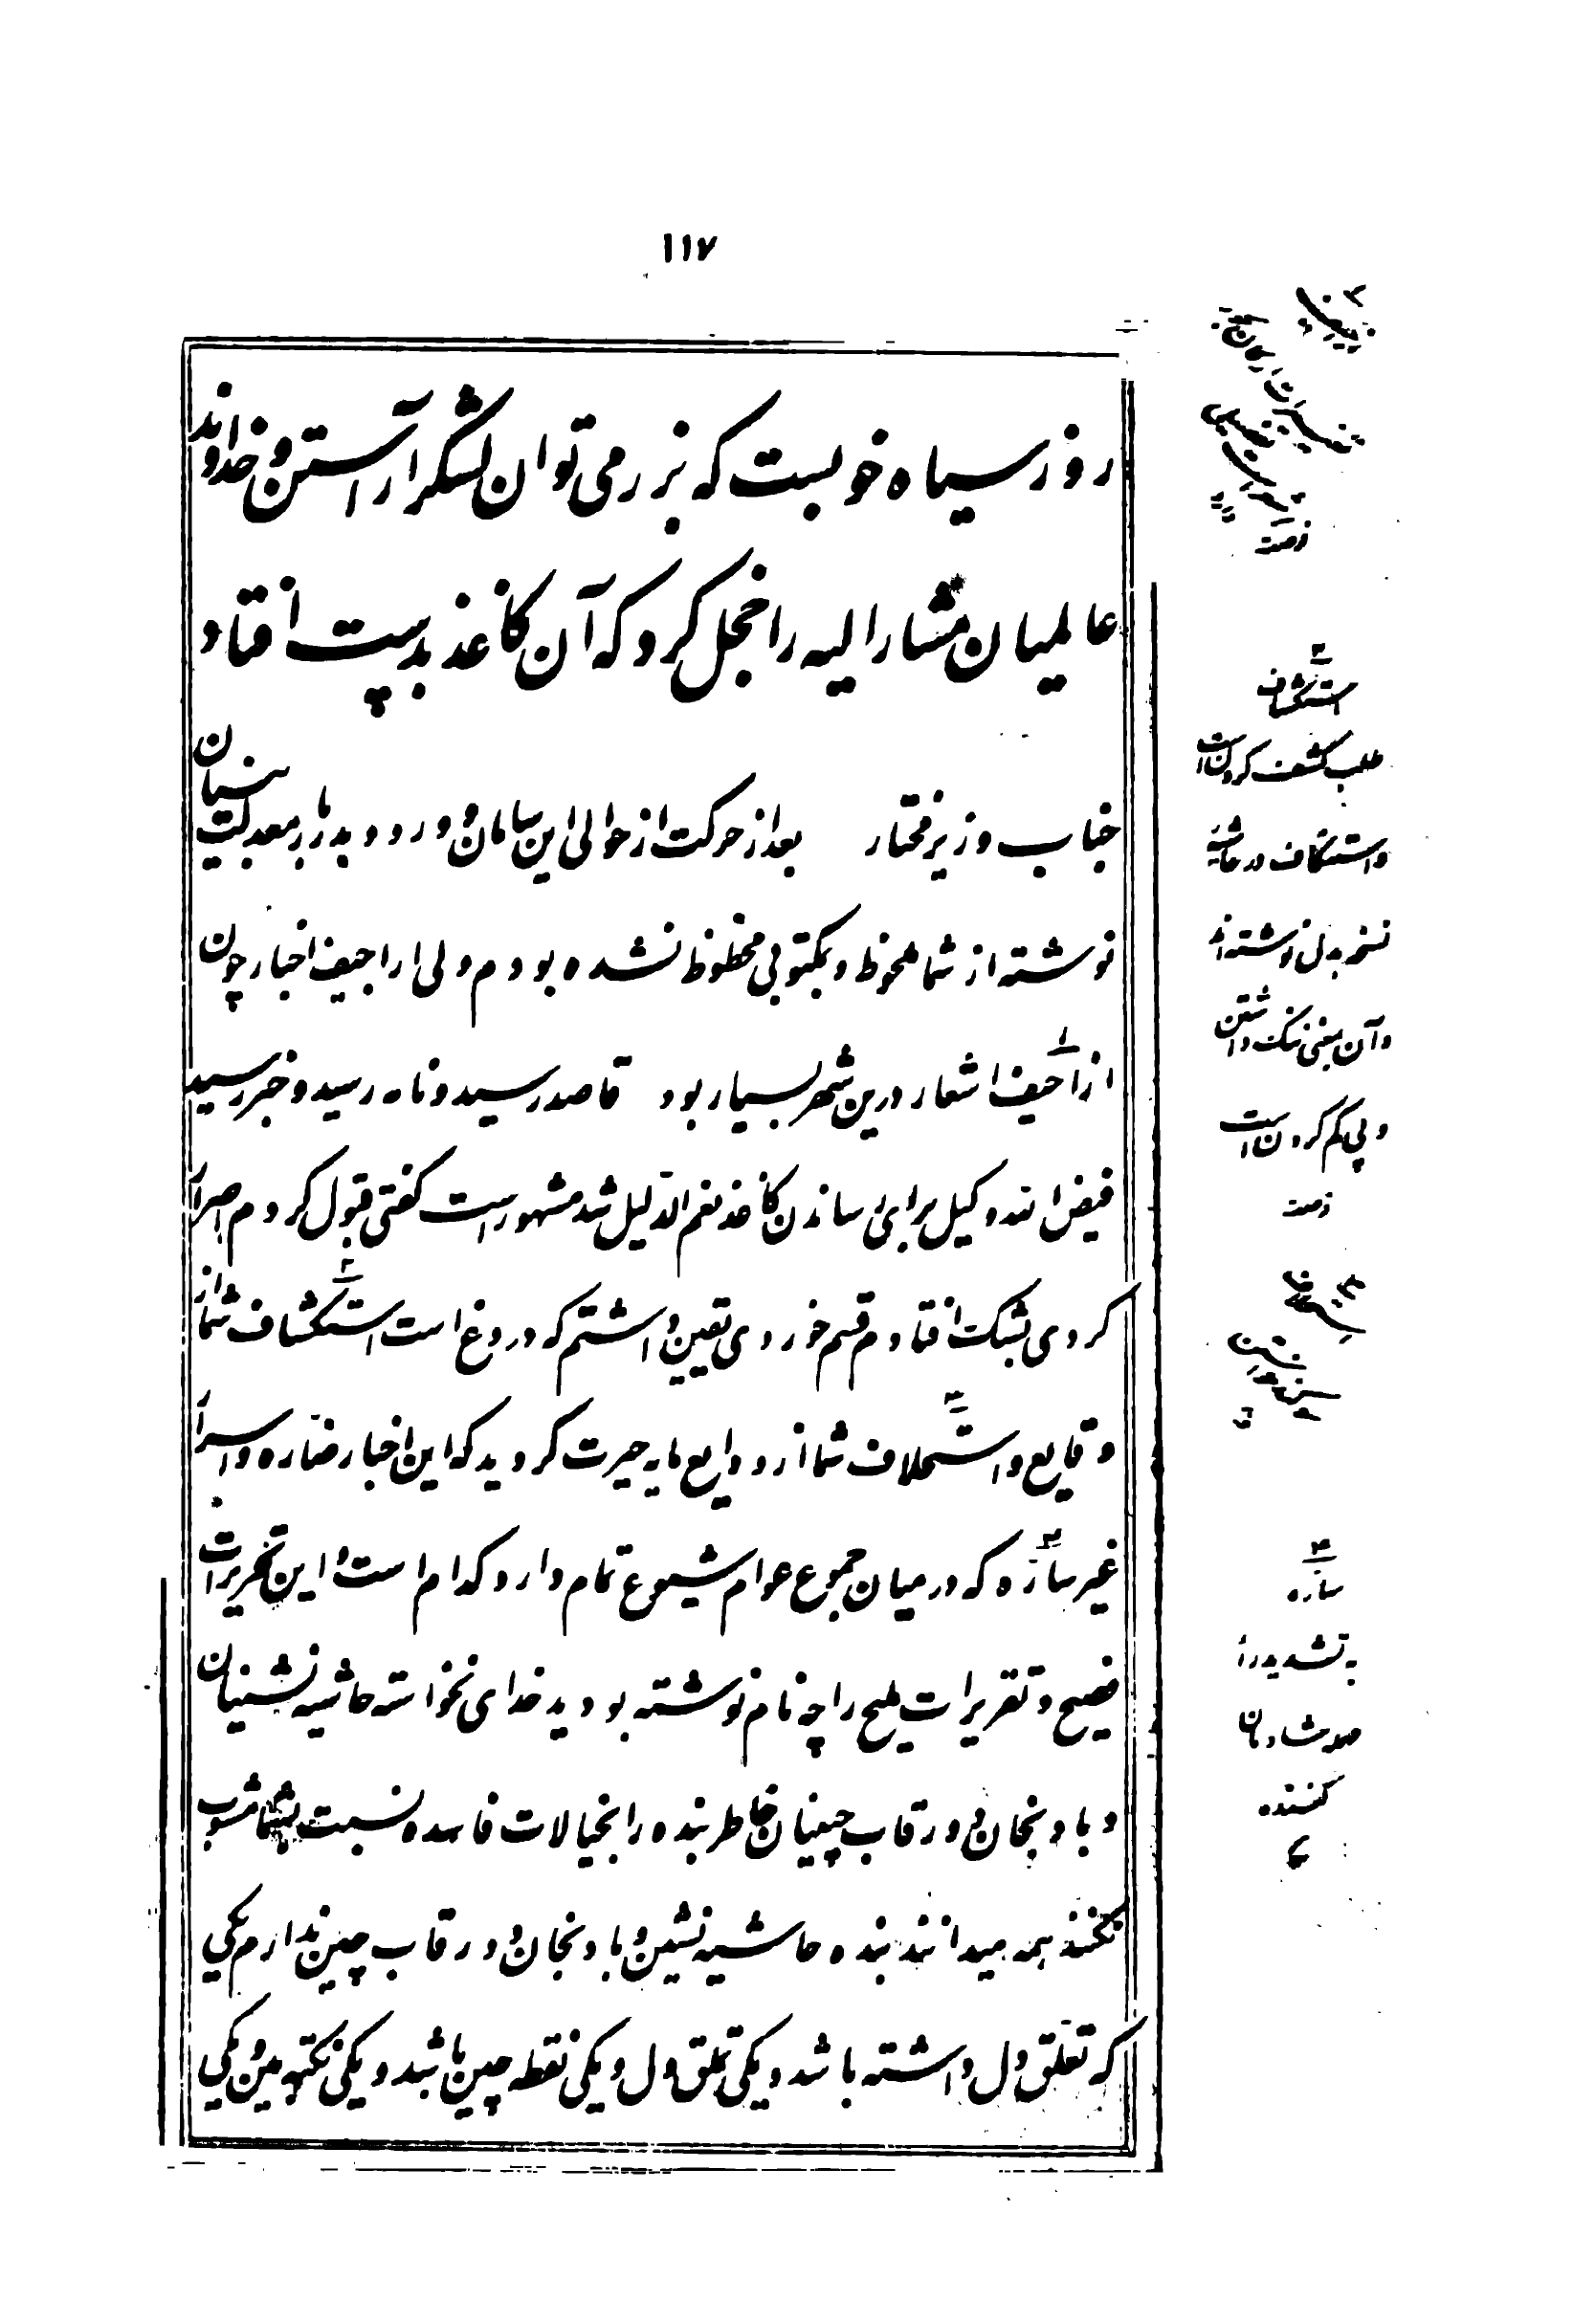 ۱۱۷
روز سیاه خوبست که بزر می توان لشکر آراستن و خداوند
عالمیان مشارالیه را خجل کرد که آن کاغذ بدست افتاد
جناب وزیر مختار بعد از حرکت از حوالی این سامان و ورود بدربار معدلت بنیان
نوشته از شما ملحوظ و بمکتوبی محظوظ نشده بودم ولی اراجیف اخبار چون
از احیف اشعار درین شهر بسیار بود قاصد رسید و نامه رسید و خبر رسید
فیض الله وکیل برای رساندن کاغذ نعم الدلیل شد مشهور است گفتی قبول کردم اصرار
کردی بشک افتادم قسم خوردی یقین داشتم که دروغ است استکشاف شما از
وقایع و استحلاف شما از ودایع مایه حیرت گردید که این اخبار ضاره و اسرار
غیر ساره که در میان جموع عوام شیوع تمام دارد کدام است و این تحریرات
فصیح و تقریرات ملیح را چه نام نوشته بودید خدای نخواسته حاشیه نشینان
و بادنجان دور قاب چینان خاطر بنده را بخیالات فاسده نسبت بشما مشوب
نکنند همه میدانند بنده حاشیه نشین و بادنجان دور قاب چین ندارم یکی
که تعلق دل داشته باشد و یکی تملق ول و یکی نقطه چین باشد و یکی نکته بین و یکی
استکشاف
طلب کشف کردن است
و استنکاف در حاشیه
نسخه بدل نوشته اند
و آن بمعنی ننگ داشتن
و پی گم کردن است
ساره
به تشدید راء
شادمان
کننده